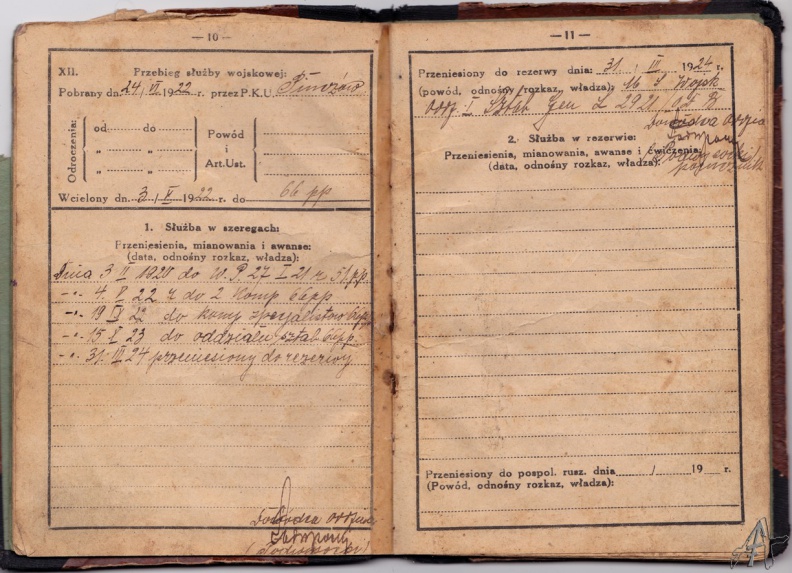 — 10 —
XII. Przebieg służby wojskowej:
Pobrany dn. 24/VI 1922 r. przez P.K.U. Pińczów
Odroczenia:
od do
„ „
„ „
Powód
i
Art.Ust.
Wcielony dn. 3/V 1922 r. do 66 pp
1. Służba w szeregach:
Przeniesienia, mianowania i awanse:
(data, odnośny rozkaz, władza):
Dnia 3 II 1920 do W.P 27 I 21 r 51 pp.
-„- 4. V 22 r do 2 Komp 66pp
-„- 19 22 do komp specjalistów 66pp
-„- 15 I 23 do oddziału sztab 66pp.
-„- 31. III 24 przeniesiony do rezerwy
Dowódca
— 11 —
Przeniesiony do rezerwy dnia: 31 III 1924 r.
(powód, odnośny rozkaz, władza): 16 Wojsk
Sztab Gen L 2921
Dowódca
2. Służba w rezerwie:
Przeniesienia, mianowania, awanse i ćwiczenia:
(data, odnośny rozkaz, władza):
porucznik
Przeniesiony do pospol. rusz. dnia / 19 r.
(Powód, odnośny rozkaz, władza):